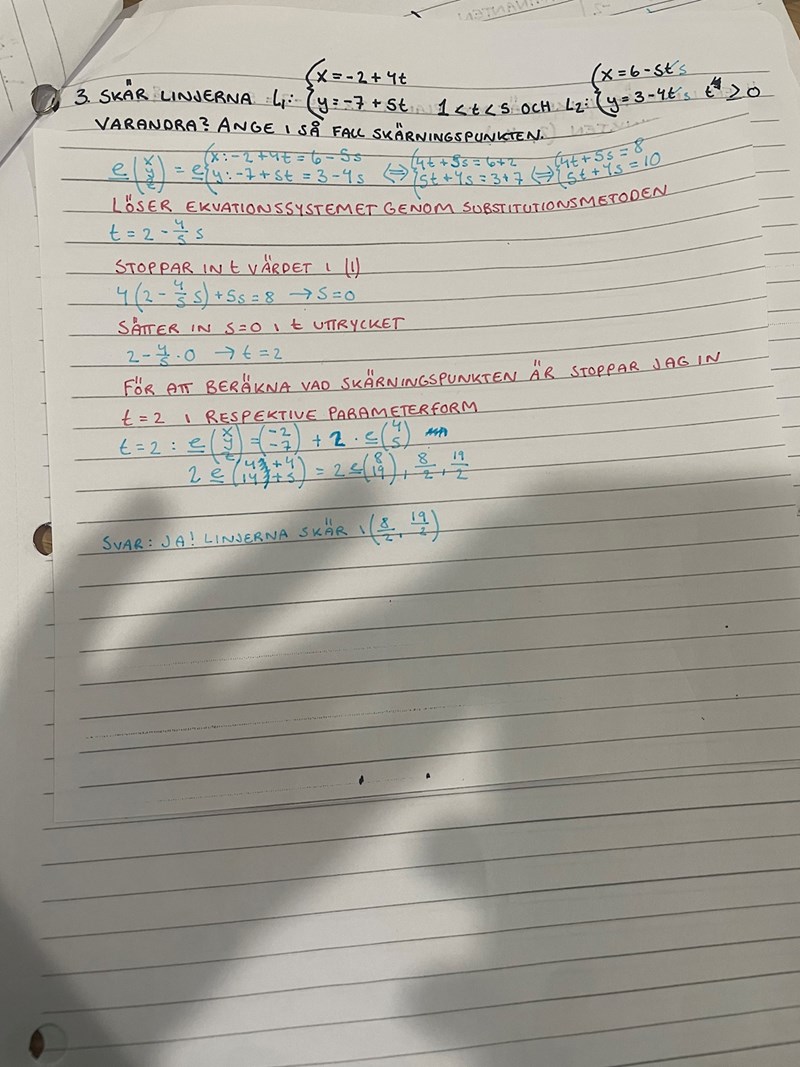 {x = -2 + 4t {x = 6 - 5t s
3. SKÄR LINJERNA L₁: {y = -7 + 5t 1 < t < 5 OCH L₂: {y = 3 - 4t s t ≥ 0
VARANDRA? ANGE I SÅ FALL SKÄRNINGSPUNKTEN.
e(x y z) = e{x: -2 + 4t = 6 - 5s ⇔ {4t + 5s = 6+2 ⇔ {4t + 5s = 8
{y: -7 + 5t = 3 - 4s {5t + 4s = 3+7 {5t + 4s = 10
LÖSER EKVATIONSSYSTEMET GENOM SUBSTITUTIONSMETODEN
t = 2 - 4/5 s
STOPPAR IN t VÄRDET I (1)
4(2 - 4/5 s) + 5s = 8 → s = 0
SÄTTER IN s = 0 I t UTTRYCKET
2 - 4/5 · 0 → t = 2
FÖR ATT BERÄKNA VAD SKÄRNINGSPUNKTEN ÄR STOPPAR JAG IN
t = 2 I RESPEKTIVE PARAMETERFORM
t = 2 : e(x y z) = (-2 -7) + 2 · e(4 5)
2 e( + 4 + 5) = 2e(8 19), 8/2, 19/2
SVAR: JA! LINJERNA SKÄR I (8/2, 19/2)